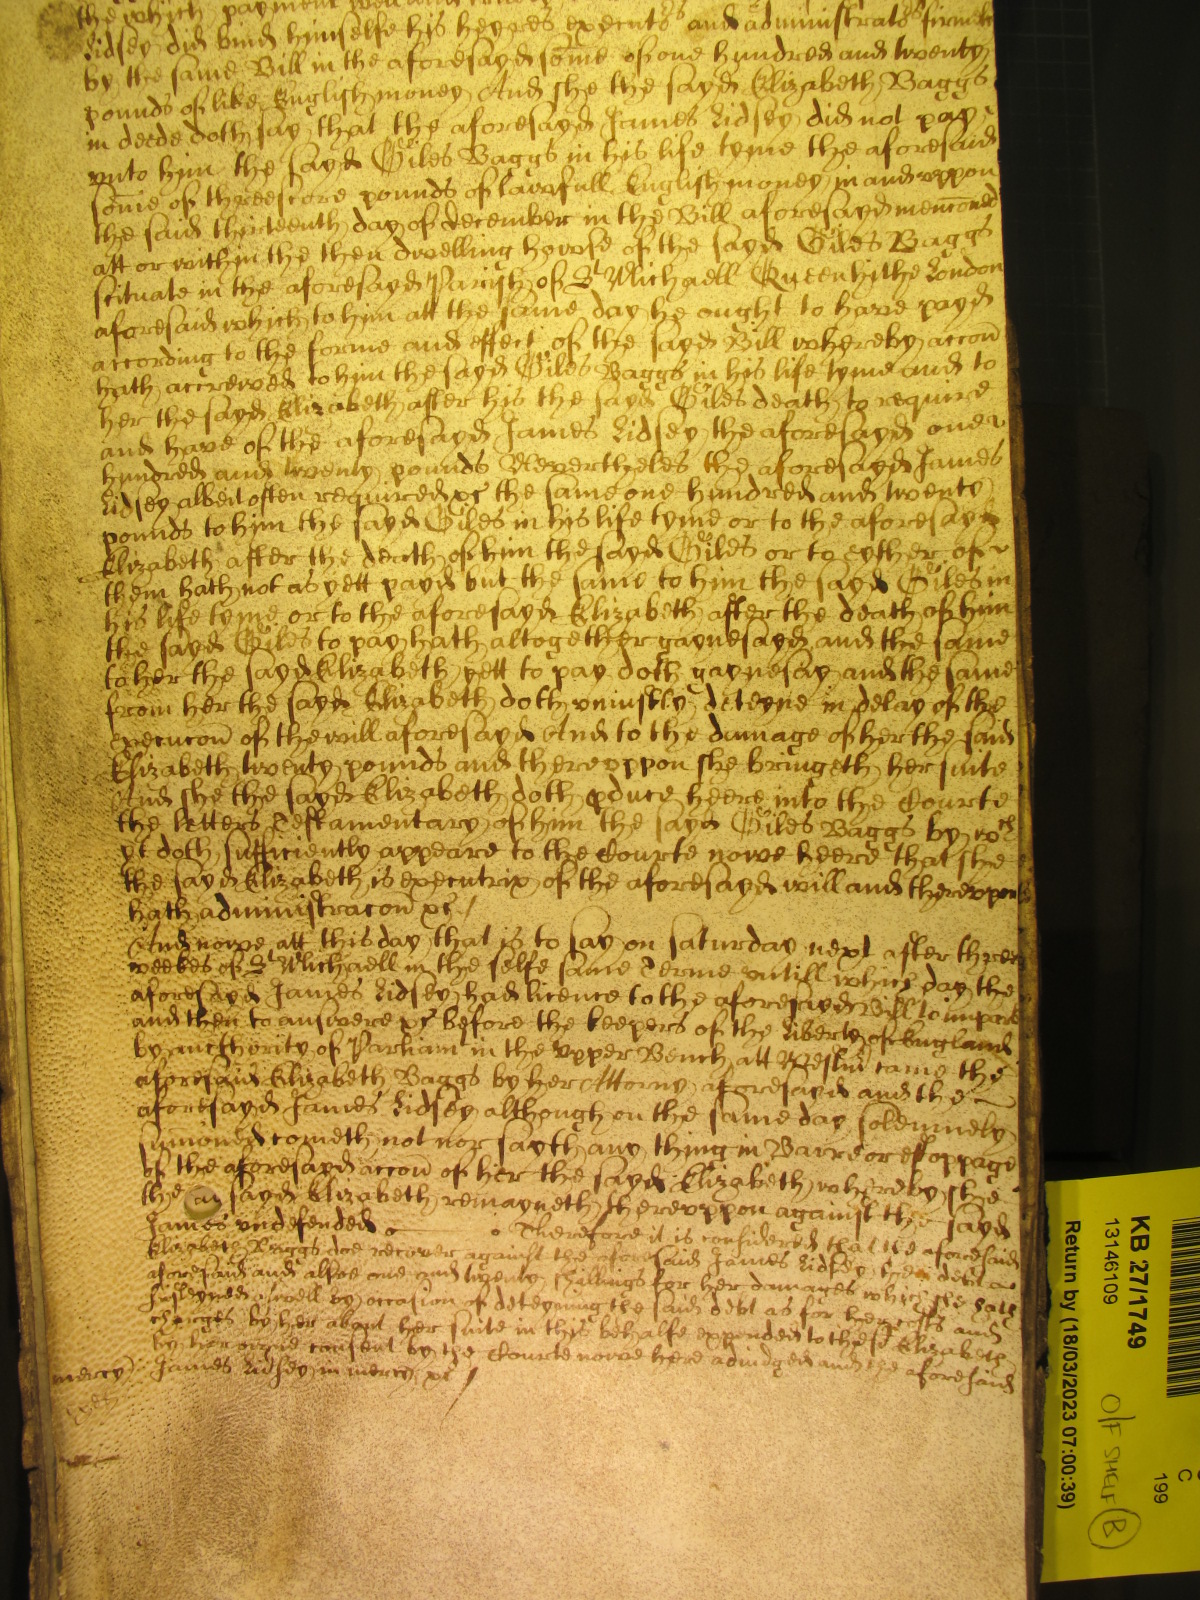 the which payment well and truely
Lidsey did bind himselfe his heyres executors and administrators firmely
by the same Bill in the aforesayd some of one hundred and twenty
pounds of like English money And she the sayd Elizabeth Baggs
in deede doth say that the aforesayd James Lidsey did not pay
vnto him the sayd Giles Baggs in his life tyme the aforesaid
some of threescore pounds of lawfull English money in and vppon
the said thirteenth day of december in the Bill aforesayd menconed
att or within the then dwelling howse of the sayd Giles Baggs
scituate in the aforesayd Parish of St Michaell Queenhithe London
aforesaid which to him att the same day he ought to have payd
according to the forme and effect of the sayd Bill whereby accon
hath accrewed to him the sayd Giles Baggs in his life tyme and to
her the sayd Elizabeth after his the sayd Giles death to require
and have of the aforesayd James Lidsey the aforesayd one
hundred and twenty pounds Neverthelés the aforesayd James
Lidsey albeit often required &c the same one hundred and twenty
pounds to him the sayd Giles in his life tyme or to the aforesayd
Elizabeth after the death of him the sayd Giles or to eyther of
them hath not as yett payd but the same to him the sayd Giles in
his life tyme or to the aforesayd Elizabeth after the death of him
the sayd Giles to pay hath altogether gaynesayd and the same
to her the sayd Elizabeth yett to pay doth gaynesay and the same
from her the sayd Elizabeth doth vniustly deteyne in delay of the
execucon of the will aforesayd And to the damage of her the said
Elizabeth twenty pounds and therevppon she bringeth her suite
And she the sayd Elizabeth doth pduce heere into the Courte
the letters Testamentary of him the sayd Giles Baggs by wch
yt doth sufficiently appeare to the Courte nowe heere that she
the sayd Elizabeth is executrix of the aforesayd will and therevppon
hath administracon &c
And nowe att this day that is to say on saturday next after three
weekes of St Michaell in the selfe same Terme vntill which day the
aforesayd James Lidsey had licence to the aforesayd Bill to imparle
and then to answere &c before the keepers of the Liberty of England
by authority of Parliamt in the Vpper Bench att Westm came the
aforesaid Elizabeth Baggs by her Attorny aforesayd and the
aforesayd James Lidsey although on the same day solemnely
sumoned cometh not nor sayth any thing in Barre or estoppage
of the aforesayd accon of her the sayd Elizabeth whereby she
the sayd Elizabeth remayneth therevppon against the sayd
James vndefended Therefore it is considered that the aforesaid
Elizabeth Baggs doe recover against the aforesaid James Lidsey her debt
aforesaid and alsoe one and twenty shillings for her damages which she hath
susteyned aswell by occasion of deteyning the said debt as for her costs and
charges by her about her suite in this behalfe expended to the said Elizabeth
by her owne consent by the Courte nowe here adiudged and the aforesaid
mercy James Lidsey in mercy &c
KB 27/1749
13146109
Return by (18/03/2023 07:00:39)
O/F SHELF B
C
199